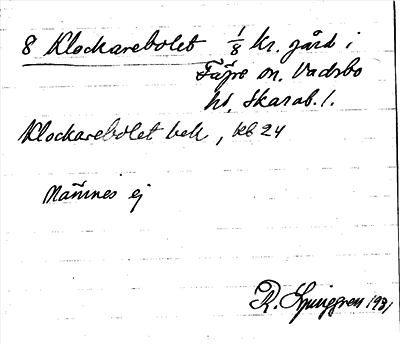 8 Klockarebolet 1/8 kr. gård i
Fägre sn, Vadsbo
hd, Skarab. l.
Klockarebolet bek, Kb 24
Nämnes ej
R. Ljunggren 1931